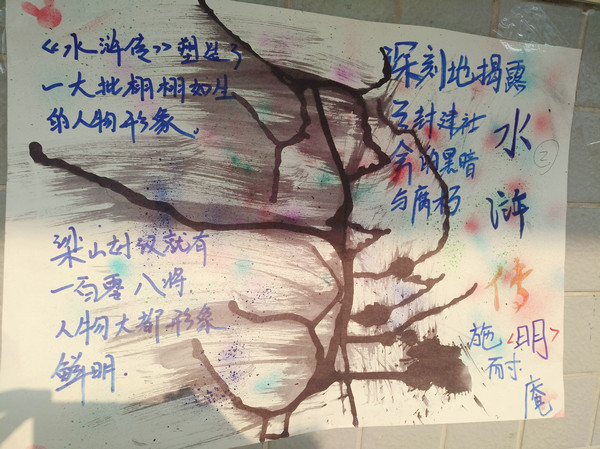 《水浒传》塑造了
一大批栩栩如生
的人物形象。
深刻地揭露
了封建社
会的黑暗
与腐朽
水浒传
2
<明>
施耐庵
梁山好汉就有
一百零八将
人物大都形象
鲜明.